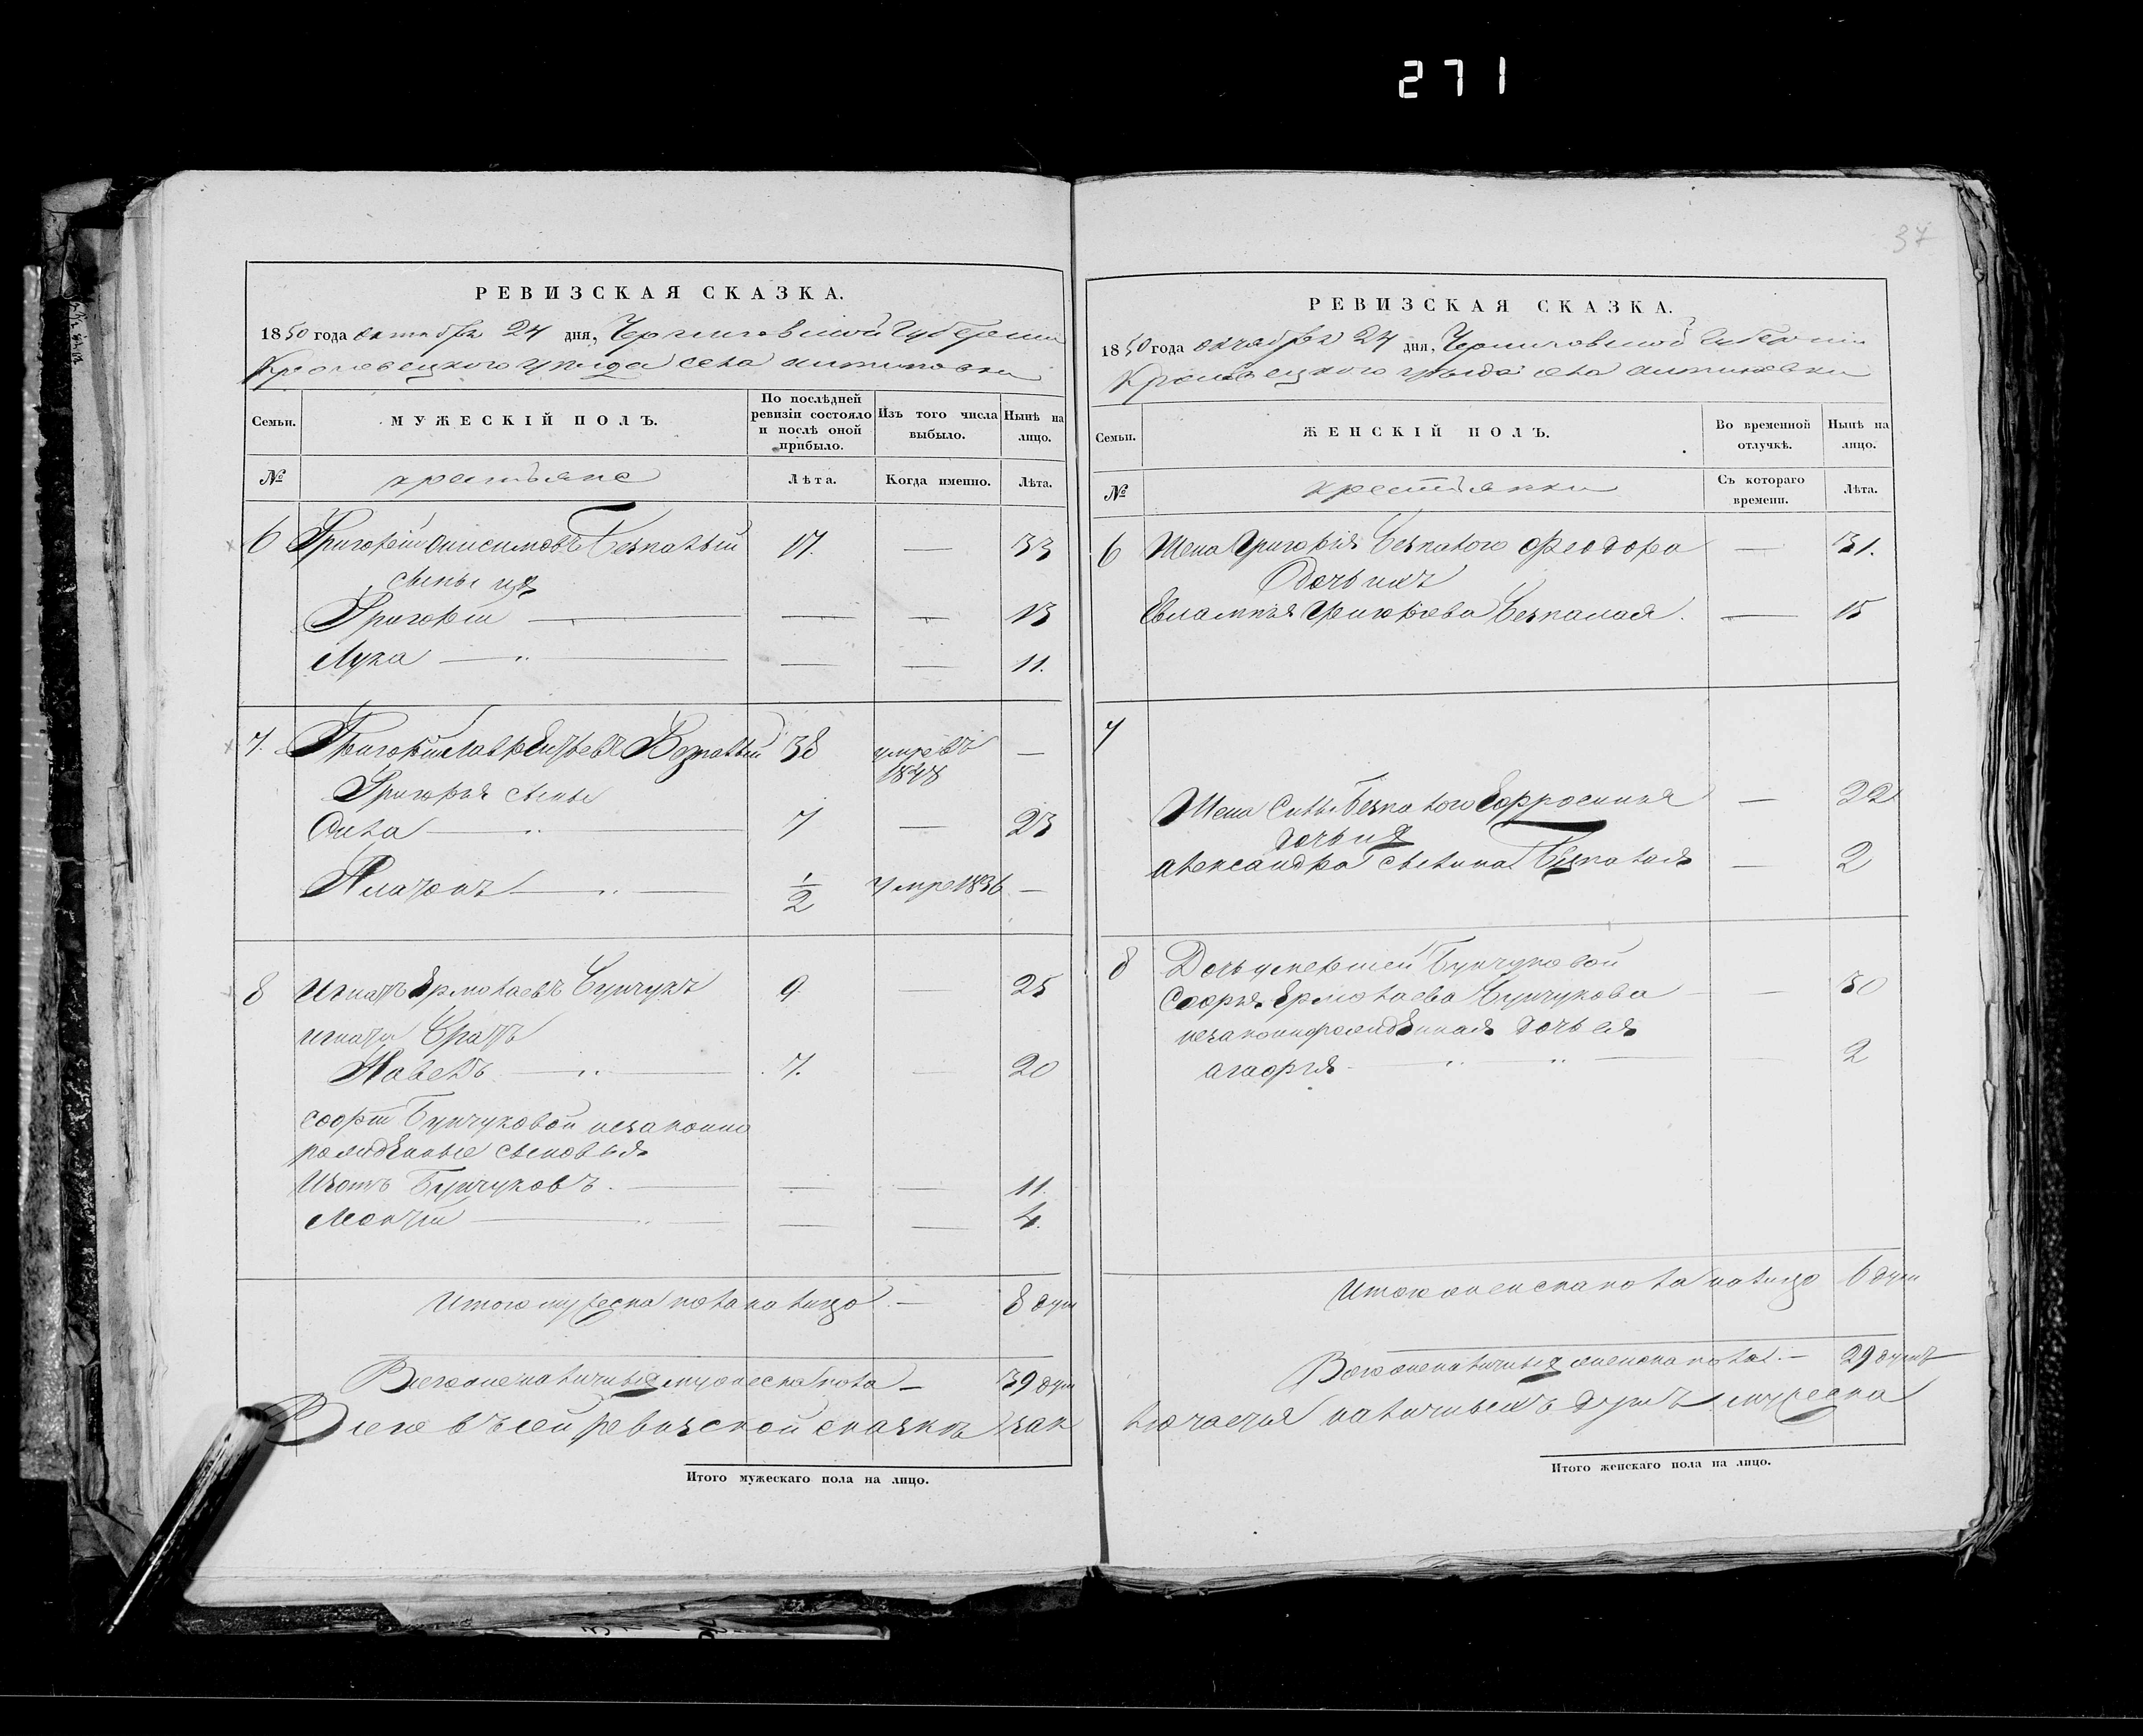 271
37
РЕВИЗСКАЯ СКАЗКА.
1850 года октября 24 дня, Черниговской Губернии
Кролевецкого уѣзда села
Семьи.
МУЖЕСКІЙ ПОЛЪ.
По послѣдней ревизіи состояло и послѣ оной прибыло.
Изъ того числа выбыло.
Нынѣ на лицо.
№
крестьяне
Лѣта.
Когда именно.
Лѣта.
6 Григорій Анисимовъ Безпалый 17. — 33
сыны его
Григорій — — — 13
Лука — " — — — 11.
7. Григорій Лаврентьевъ Безпалый 38 умре въ 1848 —
Григорія сыны
Сила — " — 7 — 23
Платонъ — " — 1/2 умре 1836 —
8 Игнатъ Ермолаевъ Бунчукъ 9 — 25
игната братъ
Павелъ — " — 7. — 20
софіи Бунчуковой незаконно
рожденные сыновья
Изотъ Бунчуковъ. — — — 11.
— " — — — 4.
Итого мужеска пола на лицо — 8 душ
Всего мужеска пола — 39 душ
Всего в сей ревизской сказкѣ зак
Итого мужескаго пола на лицо.
РЕВИЗСКАЯ СКАЗКА.
1850 года октября 24 дня, Черниговской Губерніи
Кролевецкого уѣзда села
Семьи.
ЖЕНСКІЙ ПОЛЪ.
Во временной отлучкѣ.
Нынѣ на лицо.
№
крестьянки
Съ котораго времени.
Лѣта.
6 Жена Григорія Безпалого Феодора — 31.
дочь ихъ
Евлампія Григорьева Безпалая. — 15
7
Жена Силы Безпалого Ефросинія — 22
дочь их
александра Силина Безпалая — 2
8 Дочь умершей Бунчуковой
Софія Ермолаева Бунчукова — — 30
незаконнорожденная дочь ея
агафія — " — " — 2
Итого женска пола налицо 6 душ
Всего женска пола. — 29 душъ
лючается наличныхъ душъ мужеска
Итого женскаго пола на лицо.